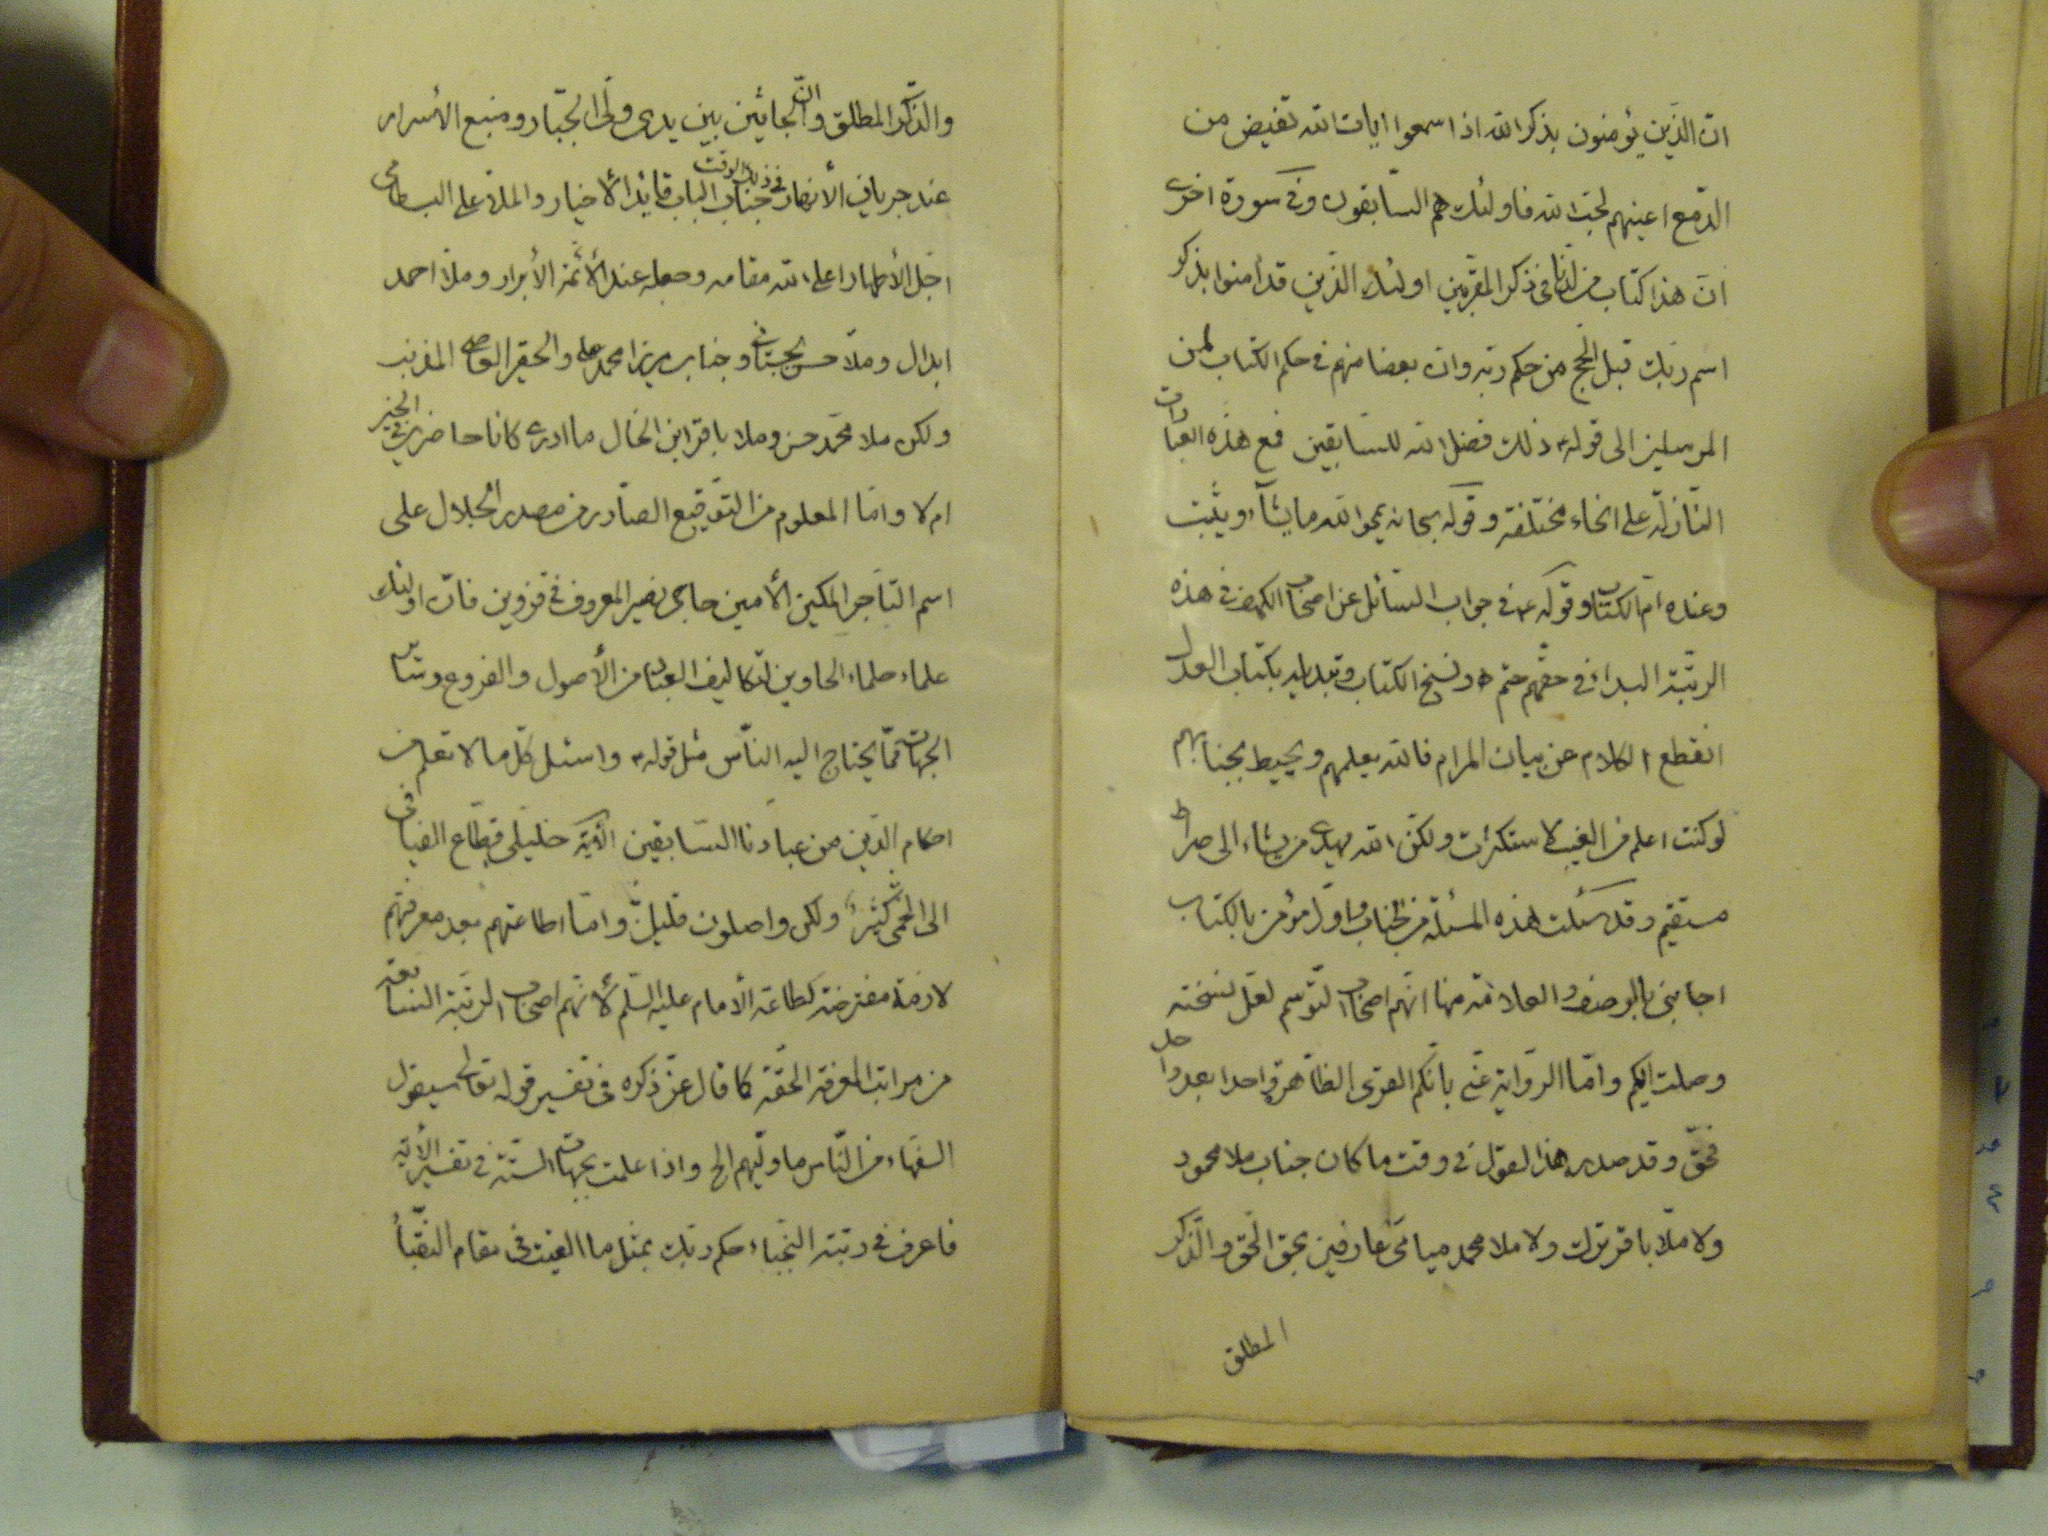 ان الذين يؤمنون بذكر الله اذا سمعوا ايات الله تفيض من
الدمع اعينهم لحب الله فاولئك هم السابقون وفي سورة اخرى
ان هذا كتاب من لدنا في ذكر المقربين اولئك الذين قد امنوا بذكر
اسم ربك قبل الحج من حكم ربه وان بعضا منهم في حكم الكتاب لمن
المرسلين الى قوله ذلك فضل الله للسابقين فمع هذه العبارات
النازلة على انحاء مختلفة وقوله سبحانه يمحو الله ما يشاء ويثبت
وعنده ام الكتاب وقوله ع في جواب السائل عن اصحاب الكهف في هذه
الرتبة البداء في حقهم حتم ونسخ الكتاب وتبديله بكتاب العدل
انقطع الكلام عن بيان المرام فالله يعلمهم ويحيط بجنابهم
لو كنت اعلم من الغيب لاستكثرت ولكن الله يهدي من يشاء الى صراط
مستقيم وقد سئلت هذه المسئلة من الجناب واول مؤمن بالكتاب
اجابني بالوصف والعلامة منها انهم اصحاب التوسم لعل نسخته
وصلت اليكم واما الرواية عني بانكم القرى الظاهرة واحدا بعد واحد
فحق وقد صدر هذا القول في وقت ما كان جناب ملا محمود
ولا ملا باقر ترك ولا ملا محمد ميامي عارفين بحق الحق والذكر
المطلق
والذكر المطلق والجاثين بين يدي ولي الجبار ومنبع الاسرار
عند جريان الأنهار في ذلك الوقت جناب الباب قايد الأخيار والملا علي البسطامي
اجل الأطهار اعلى الله مقامه وجعله عند الأئمة الأبرار وملا احمد
ابدال وملا حسن بجستاني وجناب ميرزا محمد علي والحقير العاصي المذنب
ولكن ملا محمد حسن وملا باقر ابن الخال ما ادري كانا حاضرين في الخبر
ام لا واما المعلوم من التوقيع الصادر من مصدر الجلال على
اسم التاجر المكين الأمين حاجي نصير المعروف في قزوين فان اولئك
علماء حلماء الحاوين لتكاليف العباد من الأصول والفروع وشتات
الجهات مما يحتاج اليه الناس مثل قوله واسئل كل ما لا تعلم من
احكام الدين من عبادنا السابقين الآية خليلي قطاع الفيافي
الى الحمى كثير ولكن واصلون قليل واما اطاعتهم بعد معرفتهم
لازمة مفترضة كطاعة الامام عليه السلم لأنهم اصحاب الرتبة السابعة
من مراتب المعرفة الحقة كما قال عز ذكره في تفسير قوله تعالى سيقول
السفهاء من الناس ما وليهم الخ واذا علمت بجهات الستة في تفسير الأية
فاعرف في رتبة النجباء حكم ربك بمثل ما القيت في مقام النقباء